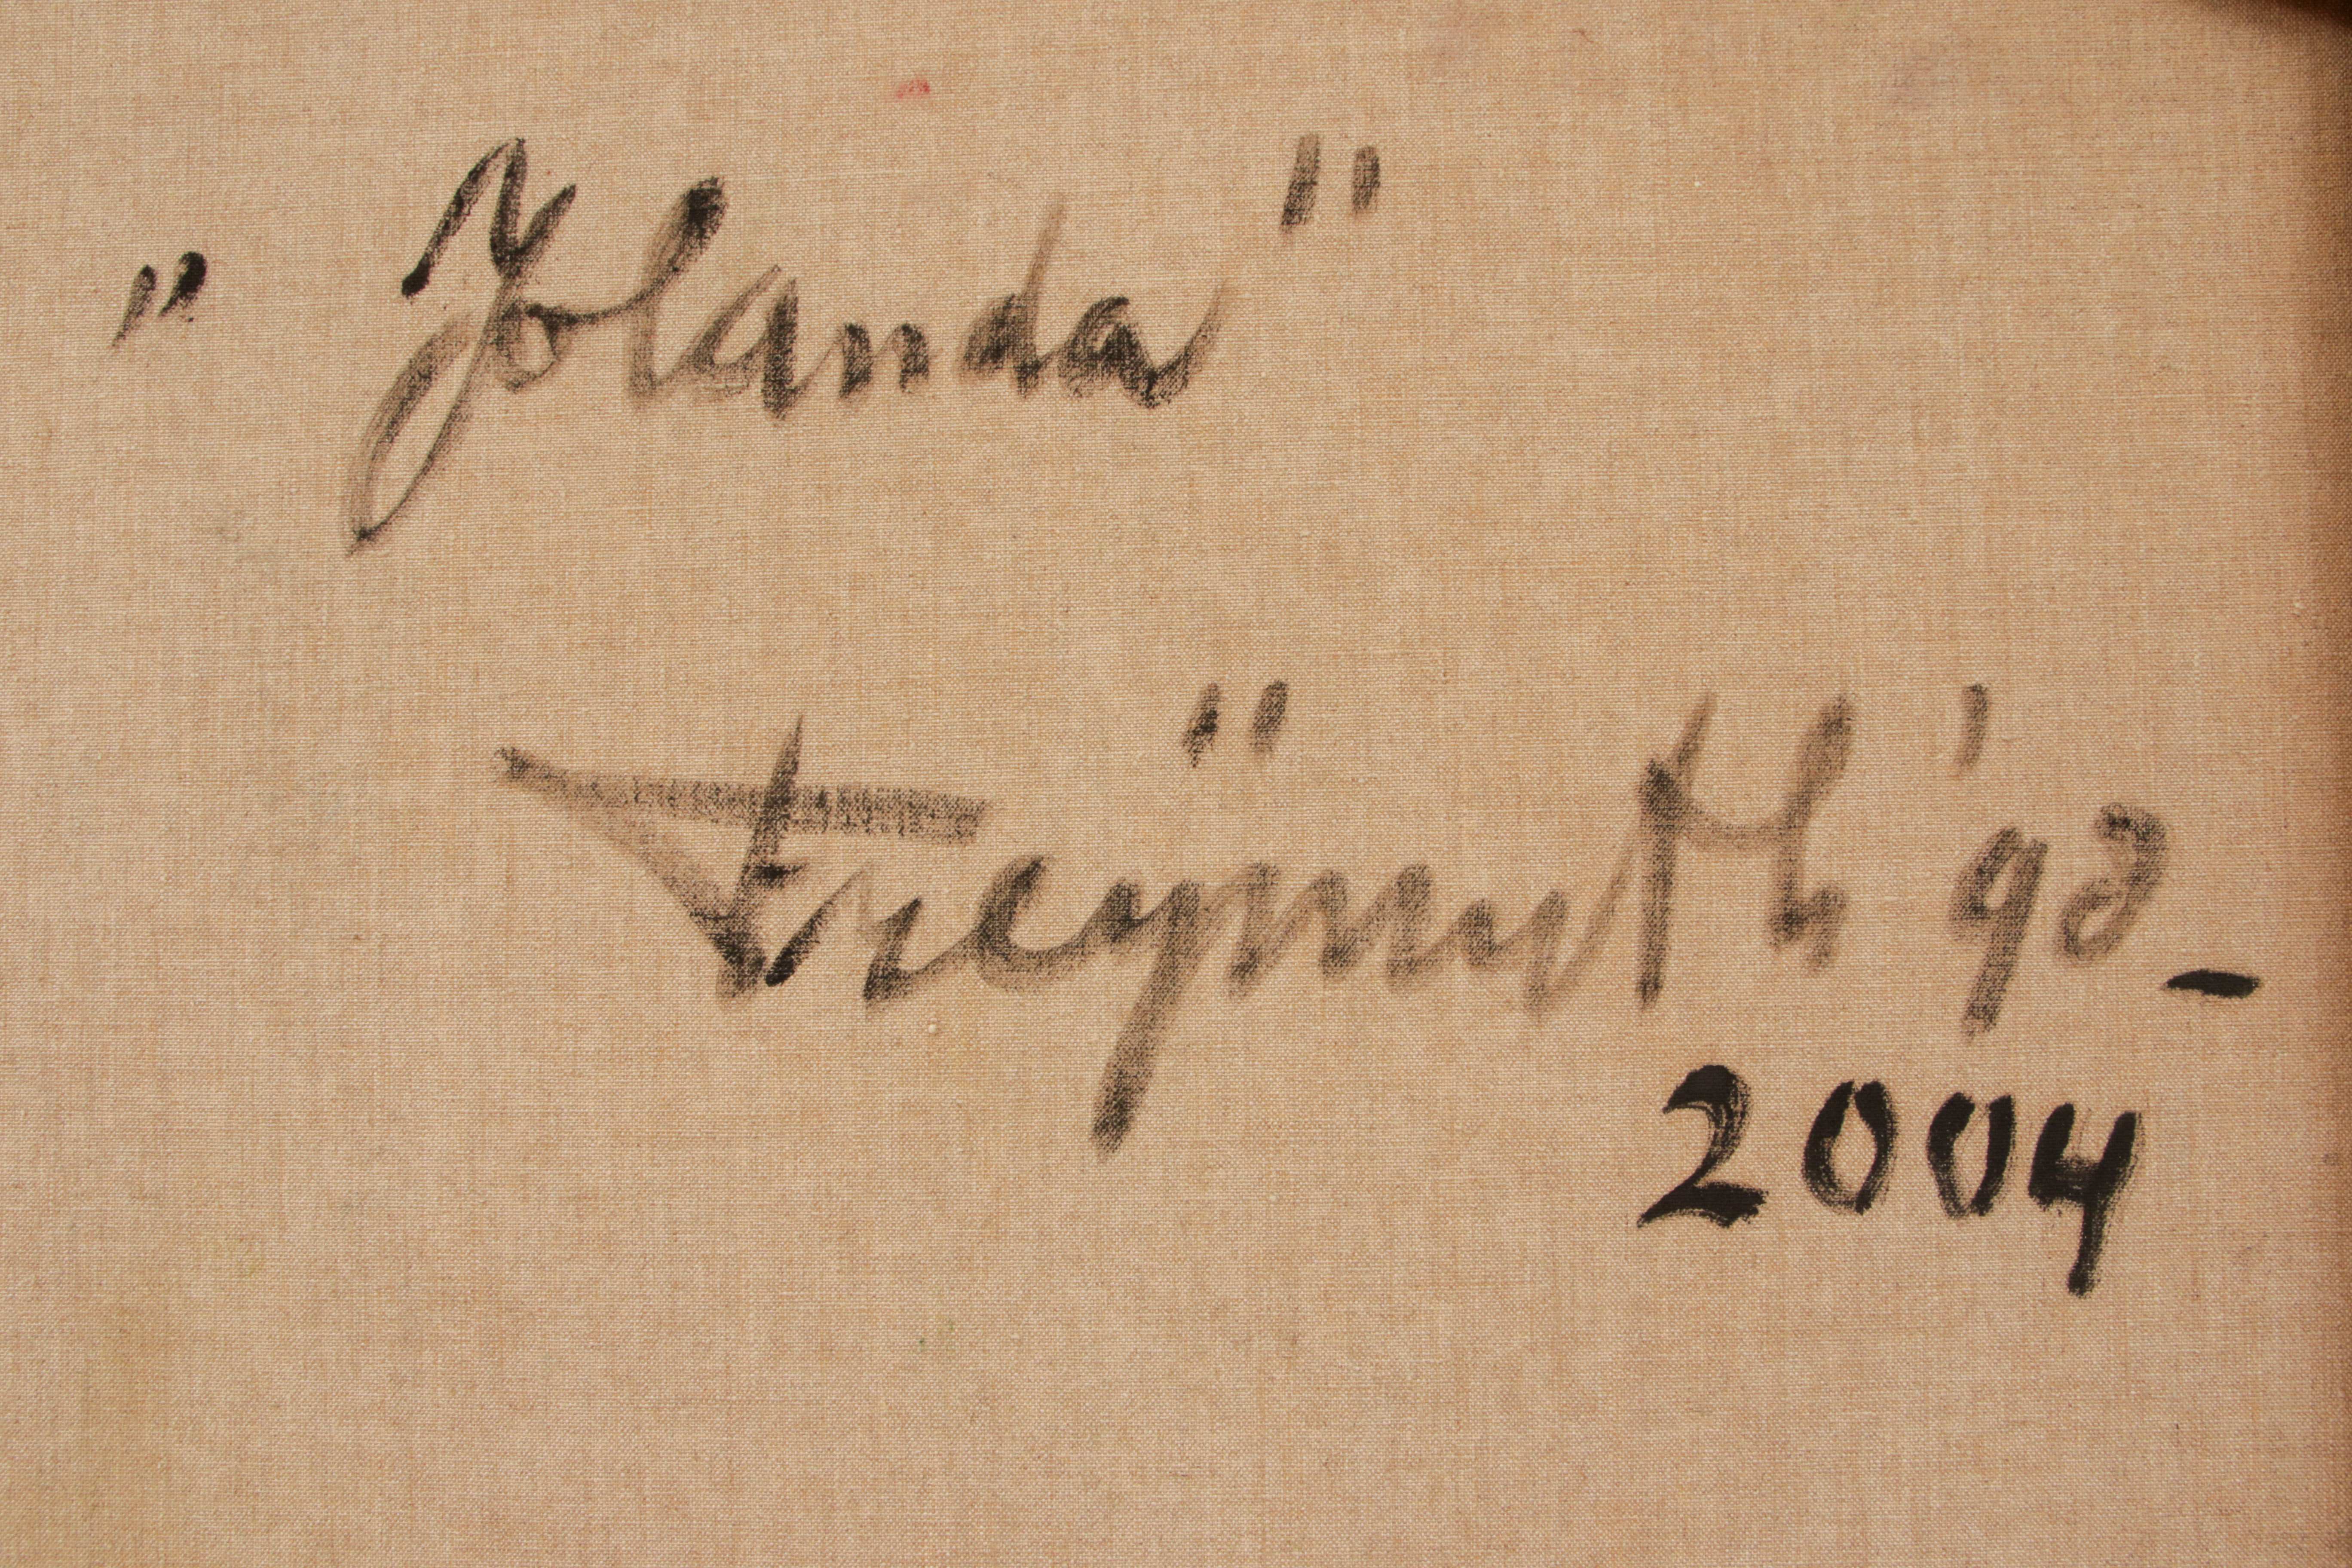 "Jolanda"
Freÿmuth '98-
2004